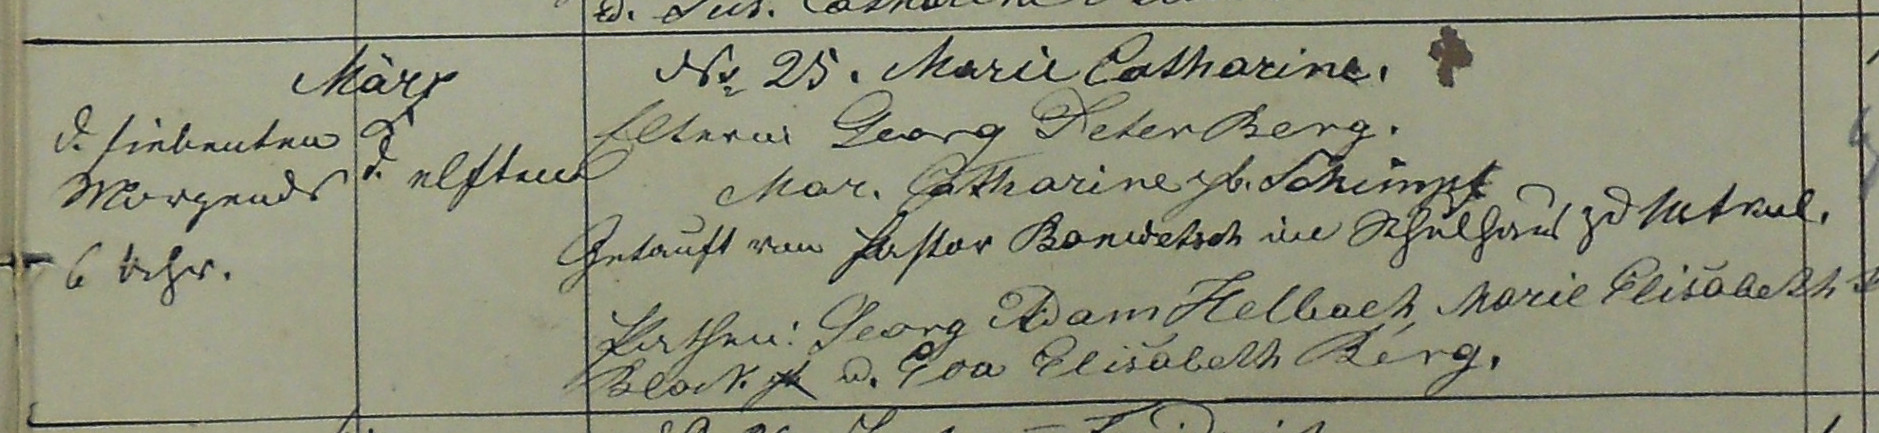 März
d. siebenten
Morgends
6 Uhr.
d. elften
No 25. Marie Catharine.
Eltern: Georg Peter Berg.
Mar. Catharine gb. Schimpf
Getauft von Pastor Bonwetsch im Schulhaus zu
Pathen: Georg Adam Helbach, Marie Elisabeth
Block u. Eva Elisabeth Berg.